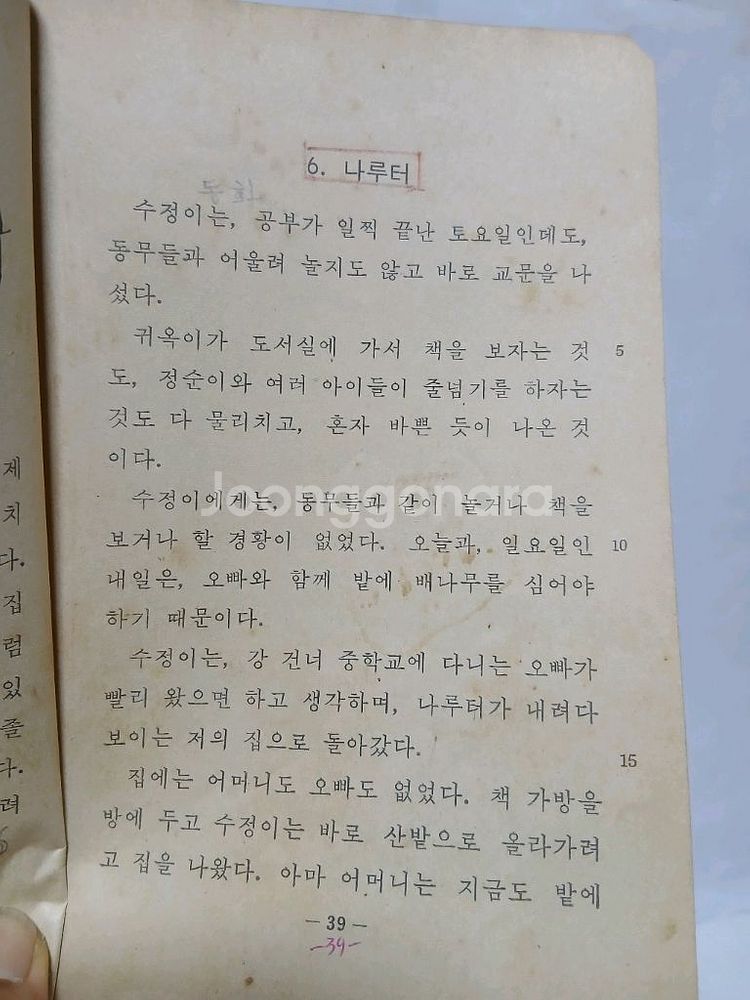 6. 나루터
수정이는, 공부가 일찍 끝난 토요일인데도,
동무들과 어울려 놀지도 않고 바로 교문을 나
섰다.
귀옥이가 도서실에 가서 책을 보자는 것
5
도, 정순이와 여러 아이들이 줄넘기를 하자는
것도 다 물리치고, 혼자 바쁜 듯이 나온 것
이다.
수정이에게는, 동무들과 같이 놀거나 책을
보거나 할 경황이 없었다. 오늘과, 일요일인
10
내일은, 오빠와 함께 밭에 배나무를 심어야
하기 때문이다.
수정이는, 강 건너 중학교에 다니는 오빠가
빨리 왔으면 하고 생각하며, 나루터가 내려다
보이는 저의 집으로 돌아갔다.
15
집에는 어머니도 오빠도 없었다. 책 가방을
방에 두고 수정이는 바로 산밭으로 올라가려
고 집을 나왔다. 아마 어머니는 지금도 밭에
-39-
-39-
제
치
다.
집
럼
있
졸
다.
려
Joonggonara